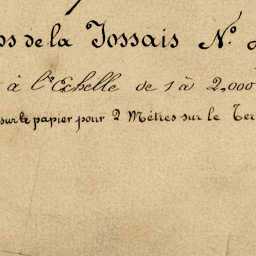 de la Jossais N.º
à l'Echelle de 1 à 2,000
sur le papier pour 2 Mètres sur le